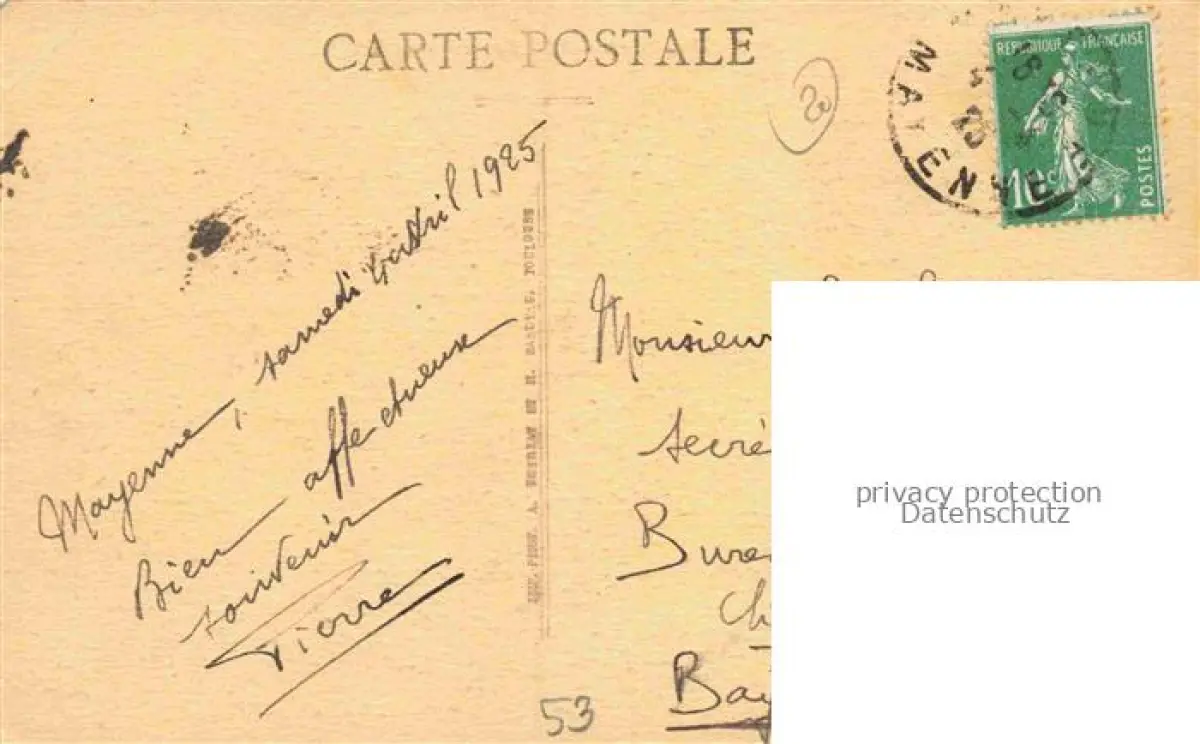 CARTE POSTALE
20
MAYENNE
REPUBLIQUE FRANÇAISE
10c
POSTES
Mayenne, samedi 4 avril 1925
Bien affectueux
souvenir
Pierre
TOULOUSE
Monsieur
secré
Burea
Ch
Bay
53
privacy protection
Datenschutz